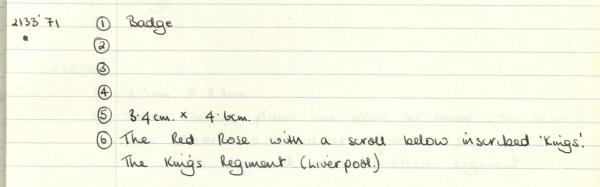 2133'71 ① Badge
②
③
④
⑤ 3.4cm. x 4.6cm.
⑥ The Red Rose with a scroll below inscribed 'Kings'.
The King's Regiment (Liverpool.)